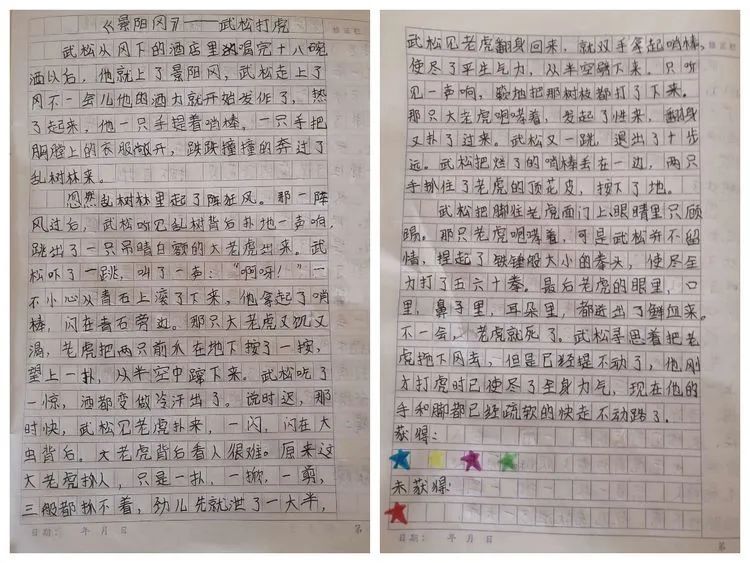 《景阳冈》——武松打虎
武松从冈下的酒店里喝完十八碗
酒以后，他就上了景阳冈，武松走上了
冈不一会儿他的酒力就开始发作了，热
了起来，他一只手提着哨棒。一只手把
胸膛上的衣服敞开，跌跌撞撞的奔过了
乱树林来。
忽然乱树林里起了阵狂风。那一阵
风过后，武松听见乱树背后扑地一声响，
跳出了一只吊睛白额的大老虎出来。武
松吓了一跳，叫了一声：“啊呀！”一
不小心从青石上滚了下来，他拿起了哨
棒，闪在青石旁边。那只大老虎又饥又
渴，老虎把两只前爪在地下按了一按，
望上一扑，从半空中蹿下来。武松吃了
一惊，酒都变做冷汗出了。说时迟，那
时快，武松见老虎扑来，一闪，闪在大
虫背后。大老虎背后看人很难。原来这
大老虎扑人，只是一扑，一掀，一剪，
三般都扑不着，劲儿先就泄了一大半，
日期： 年 月 日
第
武松见老虎翻身回来，就双手拿起哨棒，
使尽了平生气力，从半空劈下来。只听
见一声响，簌地把那树枝都打了下来。
那只大老虎咆哮着，发起了性来，翻身
又扑了过来。武松又一跳，退出了十步
远。武松把烂了的哨棒丢在一边，两只
手扒住了老虎的顶花皮，按下了地。
武松把脚往老虎面门上眼睛里只顾
踢。那只老虎咆哮着，可是武松并不留
情，捏起了铁锤般大小的拳头，使尽全
力打了五六十拳。最后老虎的眼里，口
里，鼻子里，耳朵里，都迸出了鲜血来。
不一会，老虎就死了。武松寻思着把老
虎拖下冈去，但是已经提不动了，他刚
才打虎时已使尽了全身力气，现在他的
手和脚都已经疏软的快走不动路了。
获得：
未获得：
日期： 年 月 日
第